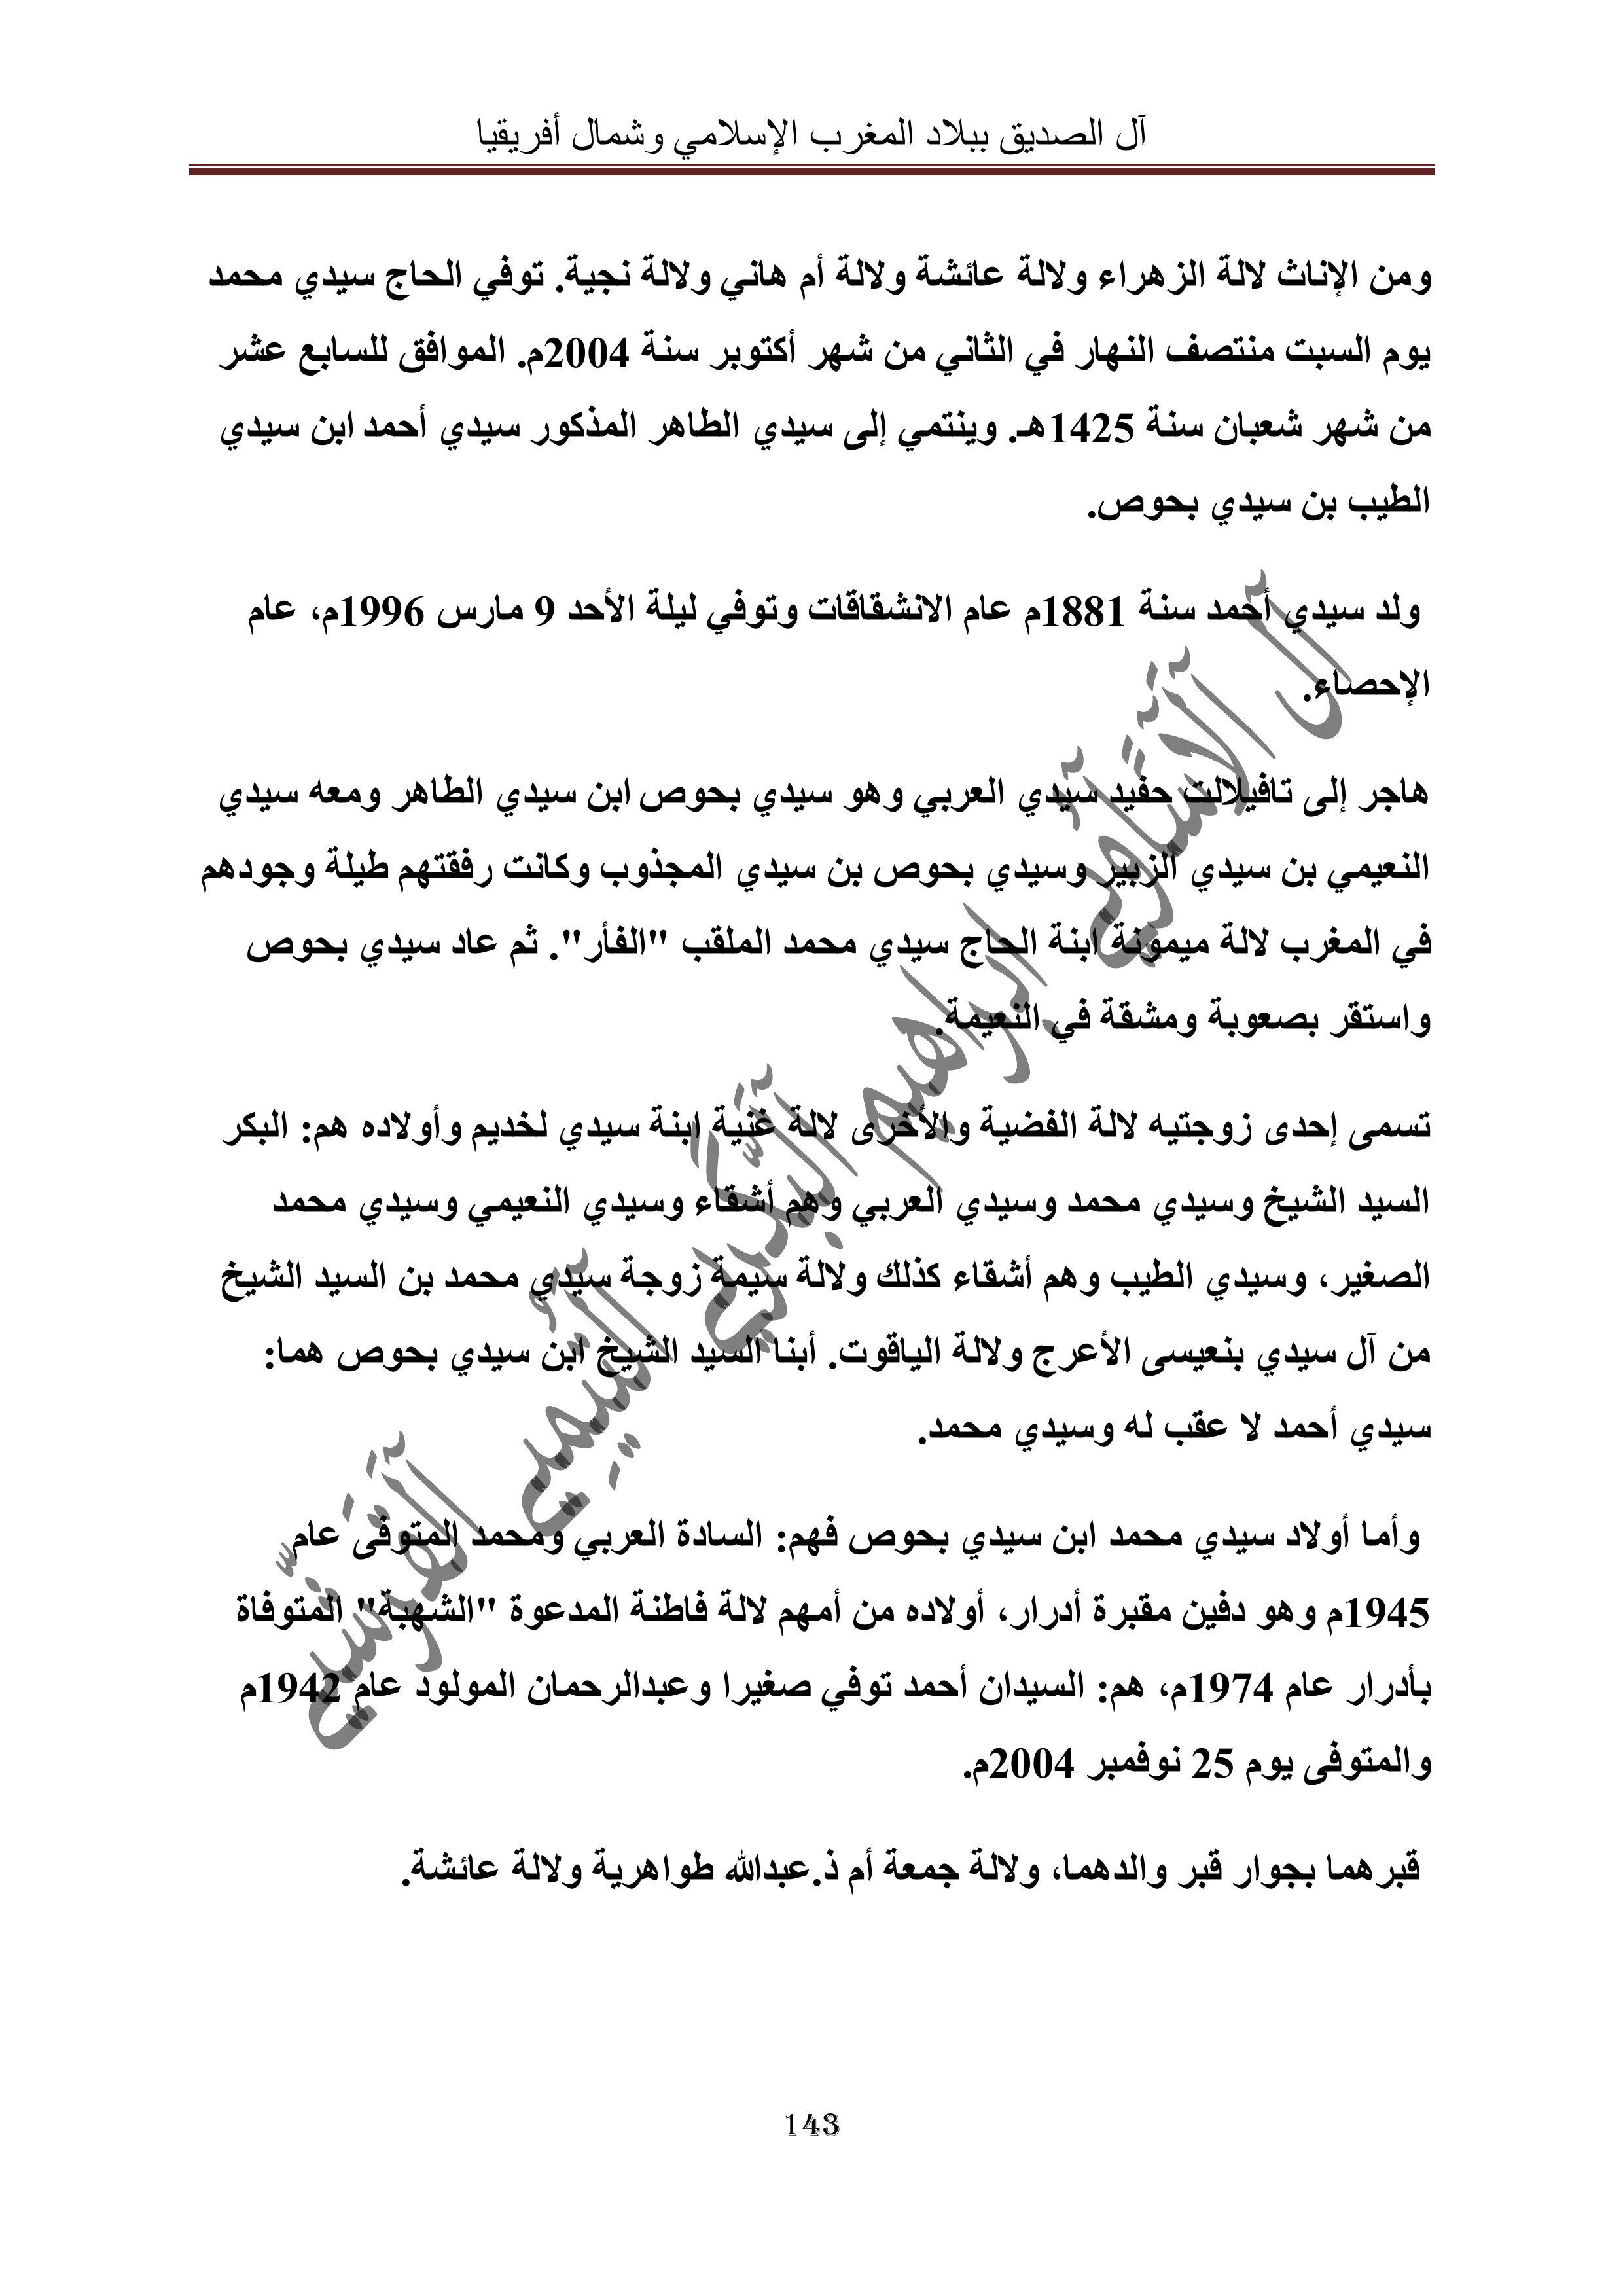 آل الصديق ببلاد المغرب الإسلامي وشمال أفريقيا
ومن الإناث لالة الزهراء ولالة عائشة ولالة أم هاني ولالة نجية. توفي الحاج سيدي محمد
يوم السبت منتصف النهار في الثاني من شهر أكتوبر سنة 2004م. الموافق للسابع عشر
من شهر شعبان سنة 1425هـ. وينتمي إلى سيدي الطاهر المذكور سيدي أحمد ابن سيدي
الطيب بن سيدي بحوص.
ولد سيدي أحمد سنة 1881م عام الانشقاقات وتوفي ليلة الأحد 9 مارس 1996م، عام
الإحصاء.
هاجر إلى تافيلالت حفيد سيدي العربي وهو سيدي بحوص ابن سيدي الطاهر ومعه سيدي
النعيمي بن سيدي الزبير وسيدي بحوص بن سيدي المجذوب وكانت رفقتهم طيلة وجودهم
في المغرب لالة ميمونة ابنة الحاج سيدي محمد الملقب "الفأر". ثم عاد سيدي بحوص
واستقر بصعوبة ومشقة في النعيمة.
تسمى إحدى زوجتيه لالة الفضية والأخرى لالة غنية ابنة سيدي لخديم وأولاده هم: البكر
السيد الشيخ وسيدي محمد وسيدي العربي وهم أشقاء وسيدي النعيمي وسيدي محمد
الصغير، وسيدي الطيب وهم أشقاء كذلك ولالة سيمة زوجة سيدي محمد بن السيد الشيخ
من آل سيدي بنعيسى الأعرج ولالة الياقوت. أبنا السيد الشيخ ابن سيدي بحوص هما:
سيدي أحمد لا عقب له وسيدي محمد.
وأما أولاد سيدي محمد ابن سيدي بحوص فهم: السادة العربي ومحمد المتوفى عام
1945م وهو دفين مقبرة أدرار، أولاده من أمهم لالة فاطنة المدعوة "الشهبة" المتوفاة
بأدرار عام 1974م، هم: السيدان أحمد توفي صغيرا وعبدالرحمان المولود عام 1942م
والمتوفى يوم 25 نوفمبر 2004م.
قبرهما بجوار قبر والدهما، ولالة جمعة أم ذ.عبدالله طواهرية ولالة عائشة.
143